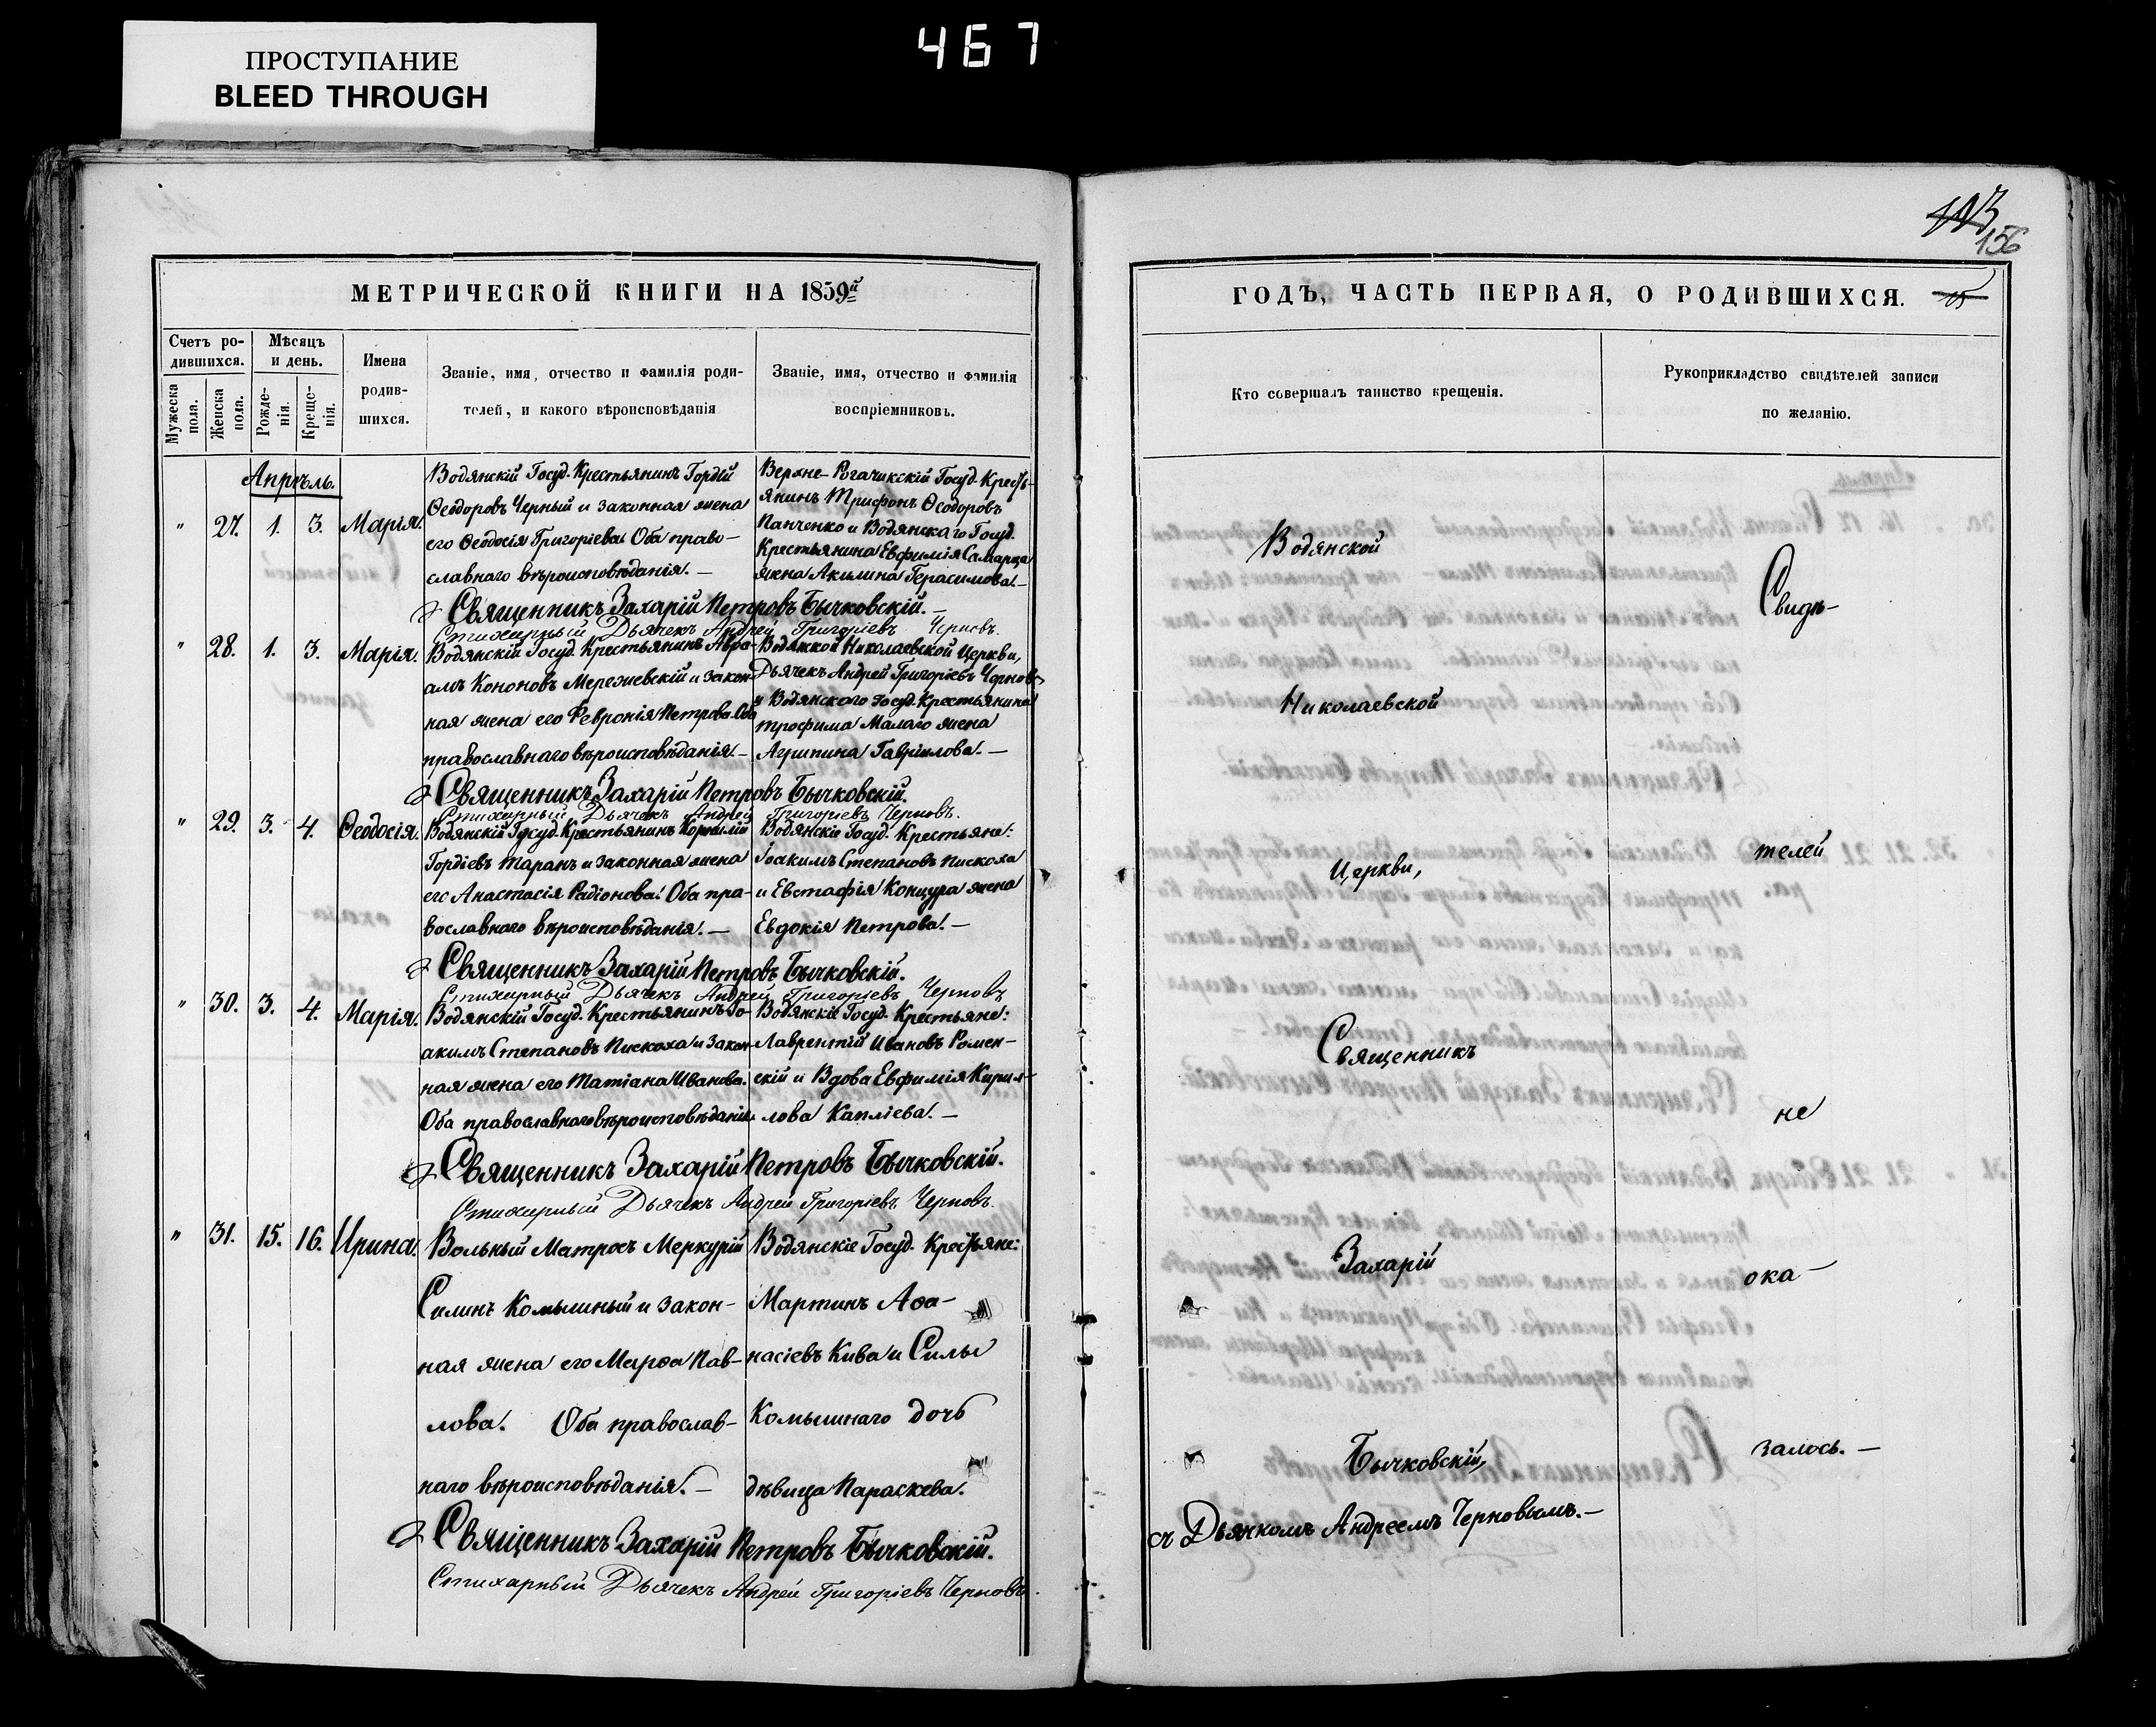 ПРОСТУПАНИЕ
BLEED THROUGH
467
МЕТРИЧЕСКОЙ КНИГИ НА 1859й
Счетъ ро-
дившихся.
Мужеска пола.
Женска пола.
Мѣсяцъ
и день.
Рожде-
нія.
Креще-
нія.
Имена
родив-
шихся.
Званіе, имя, отчество и фамилія роди-
телей, и какого вѣроисповѣданія
Званіе, имя, отчество и фамилія
воспріемниковъ.
Апрѣль.
" 27. 1. 3. Марія.
Водянскій Госуд. Крестьянинъ Гордій
Ѳеодоровъ Черный и законная жена
его Ѳеодосія Григоріева. Оба право-
славнаго вѣроисповѣданія. —
Верхне-Рогачикскій Госуд. Кресть-
янинъ Трифонъ Ѳеодоровъ
Панченко и Водянскаго Госуд.
Крестьянина Евфимія Самарца
жена Акилина Герасимова. —
Священникъ Захарій Петровъ Бычковскій. —
Стихарный Дьячекъ Андрей Григоріевъ Черновъ.
" 28. 1. 3. Марія.
Водянскій Госуд. Крестьянинъ Авра-
амъ Кононовъ Мережевскій и закон-
ная жена его Февронія Петрова. Оба
православнаго вѣроисповѣданія. —
Водянкой Николаевской Церкви,
Дьячекъ Андрей Григоріевъ Черновъ
и Водянского Госуд. Крестьянина
Трофима Малаго жена
Агрипина Гавріилова. —
Священникъ Захарій Петровъ Бычковскій.
Стихарный Дьячекъ Андрей Григоріевъ Черновъ.
" 29. 3. 4. Ѳеодосія.
Водянскій Госуд. Крестьянинъ Корнилій
Гордіевъ Таранъ и законная жена
его Анастасія Радіонова. Оба пра-
вославнаго вѣроисповѣданія. —
Водянскіе Госуд. Крестьяне:
Іоакимъ Степановъ Пискоха
и Евстафія Концура жена
Евдокія Петрова. —
Священникъ Захарій Петровъ Бычковскій.
Стихарный Дьячекъ Андрей Григоріевъ Черновъ
" 30. 3. 4. Марія.
Водянскій Госуд. Крестьянинъ Іо-
акимъ Степановъ Пискоха и закон-
ная жена его Татіана Иванова.
Оба православнаго вѣроисповѣданія
Водянскіе Госуд. Крестьяне:
Лаврентій Ивановъ Ромен-
скій и Вдова Евфимія Кирил-
лова Капліева. —
Священникъ Захарій Петровъ Бычковскій.
Стихарный Дьячекъ Андрей Григоріевъ Черновъ.
" 31. 15. 16. Ирина.
Вольный Матросъ Меркурій
Силинъ Комышный и закон-
ная жена его Марѳа Пав-
лова. Оба православ-
наго вѣроисповѣданія. —
Водянскіе Госуд. Крестьяне:
Мартинъ Аѳа-
насіевъ Кива и Силы
Комышнаго дочь
дѣвица Параскева.
Священникъ Захарій Петровъ Бычковскій.
Стихарный Дьячекъ Андрей Григоріевъ Черновъ.
113
156
ГОДЪ, ЧАСТЬ ПЕРВАЯ, О РОДИВШИХСЯ. 15
Кто совершалъ таинство крещенія.
Рукоприкладство свидѣтелей записи
по желанію.
Водянской
Николаевской
Церкви,
Священникъ
Захарій
Бычковскій,
съ Дьячкомъ Андреемъ Черновымъ. —
Свидѣ-
телей
не
ока-
залось. —